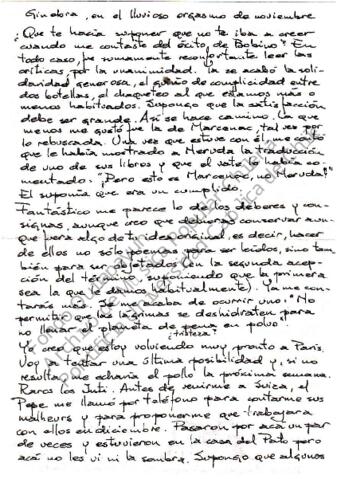 Ginebra, en el lluvioso orgasmo de noviembre
¿Que te hacía suponer que no te iba a creer
cuando me contaste del éxito de Bobino? En
todo caso, fue sumamente reconfortante leer las
críticas, por la unanimidad. Ya se acabó la soli-
daridad generosa, el guiño de complicidad entre
dos botellas, el chaqueteo al que estamos más o
menos habituados. Supongo que la satisfacción
debe ser grande. Así se hace camino. La que
menos me gustó fue la de Marcenac, tal vez por
lo rebuscada. Una vez que estuve con él me contó
que le había mostrado a Neruda la traducción
de uno de sus libros y que el vate le había co-
mentado: "¡Pero esto es Marcenac, no Neruda!"
El suponía que era un cumplido.
Fantástico me parece lo de los deberes y con-
signas, aunque creo que deberías conservar aun-
que fuera algo de tu idea original, es decir, hacer
de ellos no sólo poemas para ser leídos, sino tam-
bién para ser objetados (en la segunda acep-
ción del término, suponiendo que la primera
sea la que le damos habitualmente). Ya me con-
tarás más. Se me acaba de ocurrir uno: "No
permitir que las lágrimas se deshidraten para
no llenar el planeta de pena en polvo"
tristeza
Yo creo que estoy volviendo muy pronto a París.
Voy a tentar una última posibilidad y, si no
resulta, me echaría el pollo la próxima semana.
Raros los Inti. Antes de venirme a Suiza, el
Pepe me llamó por teléfono para contarme sus
malheurs y para proponerme que trabajara
con ellos en diciembre. Pasaron por acá un par
de veces y estuvieron en la casa del Pato pero
acá no les vi ni la sombra. Supongo que algunos